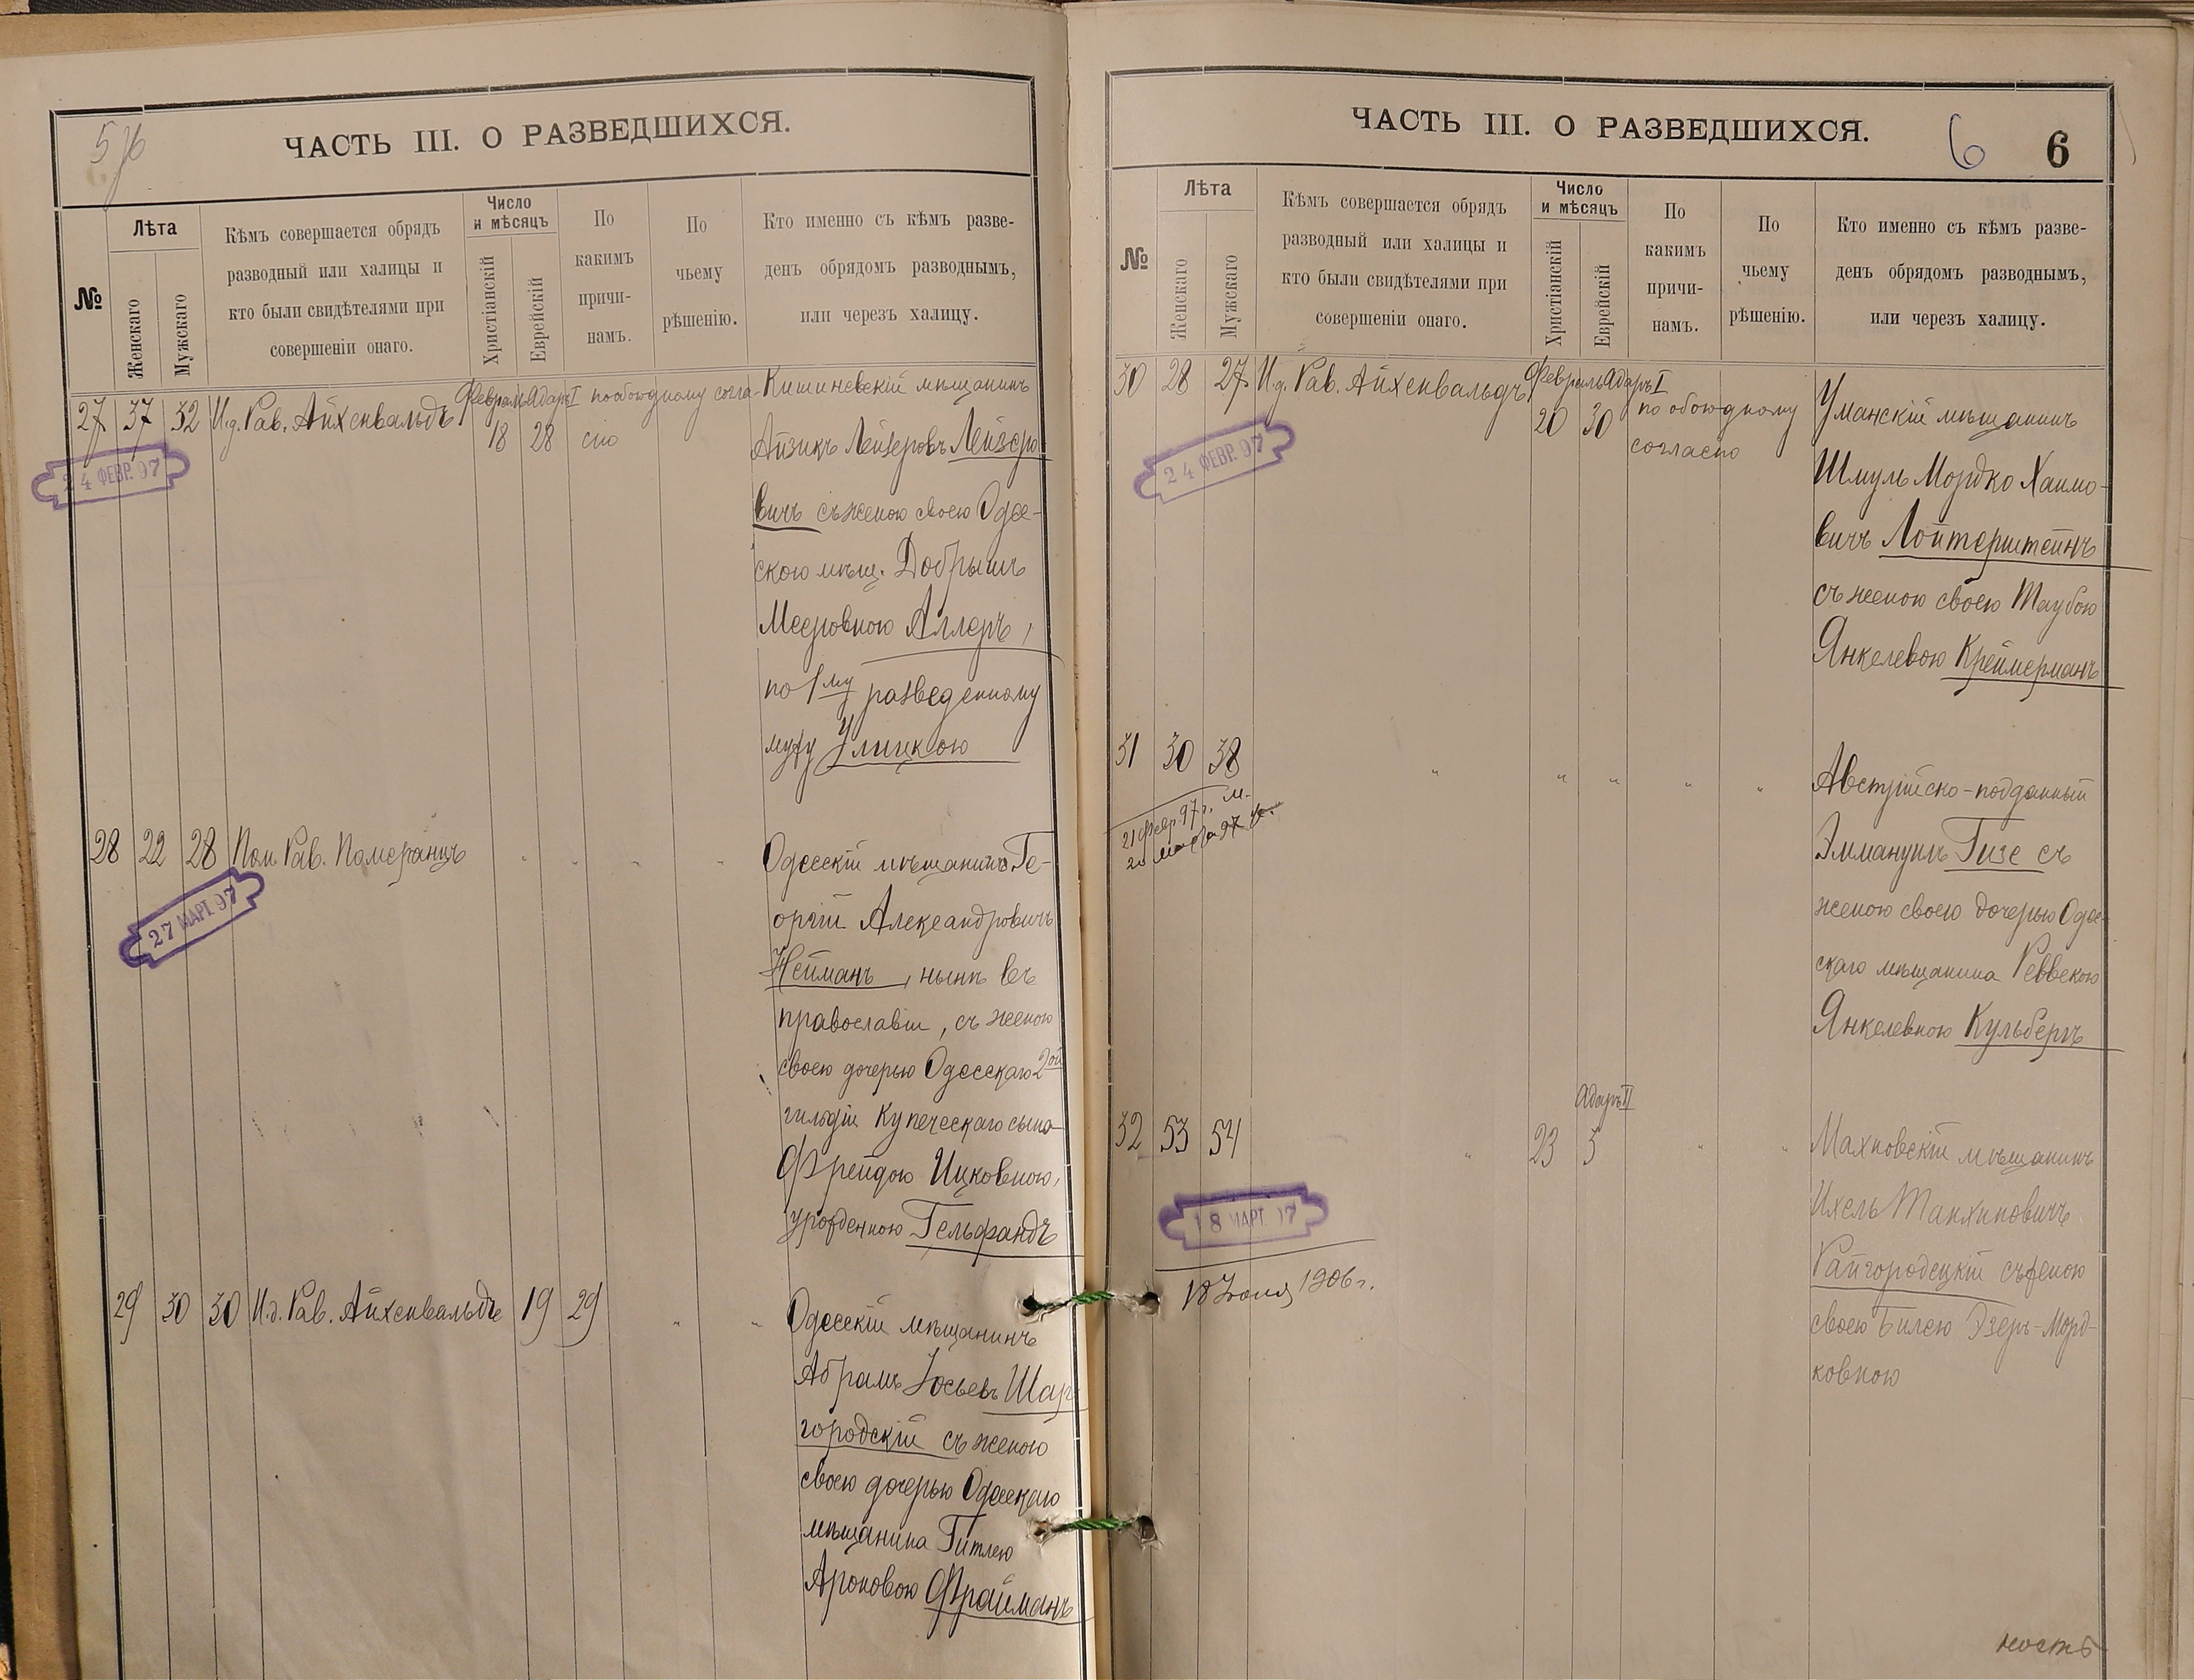 5
ЧАСТЬ III. О РАЗВЕДШИХСЯ.
№
Лѣта
Женскаго
Мужскаго
Кѣмъ совершается обрядъ
разводный или халицы и
кто были свидѣтелями при
совершеніи онаго.
Число
и мѣсяцъ
Христіанскій
Еврейскій
По
какимъ
причи-
намъ.
По
чьему
рѣшенію.
Кто именно съ кѣмъ разве-
денъ обрядомъ разводнымъ,
или черезъ халицу.
27 37 32 И.д. Рав. Айхенвальдъ
Февраль Адаръ I
18 28
по обоюдному согла-
сію
24 ФЕВР. 97
Кишиневскій мѣщанинъ
Айзикъ Лейзеровъ Лейзеро
вичъ съ женою своею Одес-
скою мѣщ. Добрышъ
Мееровною Аллеръ,
по 1му разведенному
мужу Улицкою
28 22 28 Пом. Рав. Померанцъ " " " "
27 МАРТ. 97
Одесскій мѣщанинъ Ге-
оргій Александровичъ
Нейманъ, нынѣ въ
православіи, съ женою
своею дочерью Одесскаго 2ой
гильдіи купеческаго сына
Фрейдою Ицковною,
урожденною Гельфандъ
29 30 30 И.д. Рав. Айхенвальдъ 19 29 " "
Одесскій мѣщанинъ
Абрамъ Іосьевъ Шар
городскій съ женою
своею дочерью Одесскаго
мѣщанина Гитлею
Ароновою Фрайманъ
ЧАСТЬ III. О РАЗВЕДШИХСЯ.
6 6
№
Лѣта
Женскаго
Мужскаго
Кѣмъ совершается обрядъ
разводный или халицы и
кто были свидѣтелями при
совершеніи онаго.
Число
и мѣсяцъ
Христіанскій
Еврейскій
По
какимъ
причи-
намъ.
По
чьему
рѣшенію.
Кто именно съ кѣмъ разве-
денъ обрядомъ разводнымъ,
или черезъ халицу.
30 28 27 И.д. Рав. Айхенвальдъ
Февраль Адаръ I
20 30
по обоюдному
согласію
24 ФЕВР. 97
Уманскій мѣщанинъ
Шмуль Мордко Хаимо-
вичъ Лойтерштейнъ
съ женою своею Таубою
Янкелевою Креймерманъ
31 30 38 " " " " "
21 Февр. 97 г. м.
20 марта 97 ж.
Австрійско-подданный
Эммануилъ Гизе съ
женою своею дочерью Одес-
скаго мѣщанина Реввекою
Янкелевною Кульбергъ
Адаръ II
32 53 54 " 23 5 " "
18 МАРТ. 97
18 Іюня 1906 г.
Махновскій мѣщанинъ
Ихель Танхиновичъ
Райгородецкій съ женою
своею Билею Эзеръ-Морд-
ковною
ность